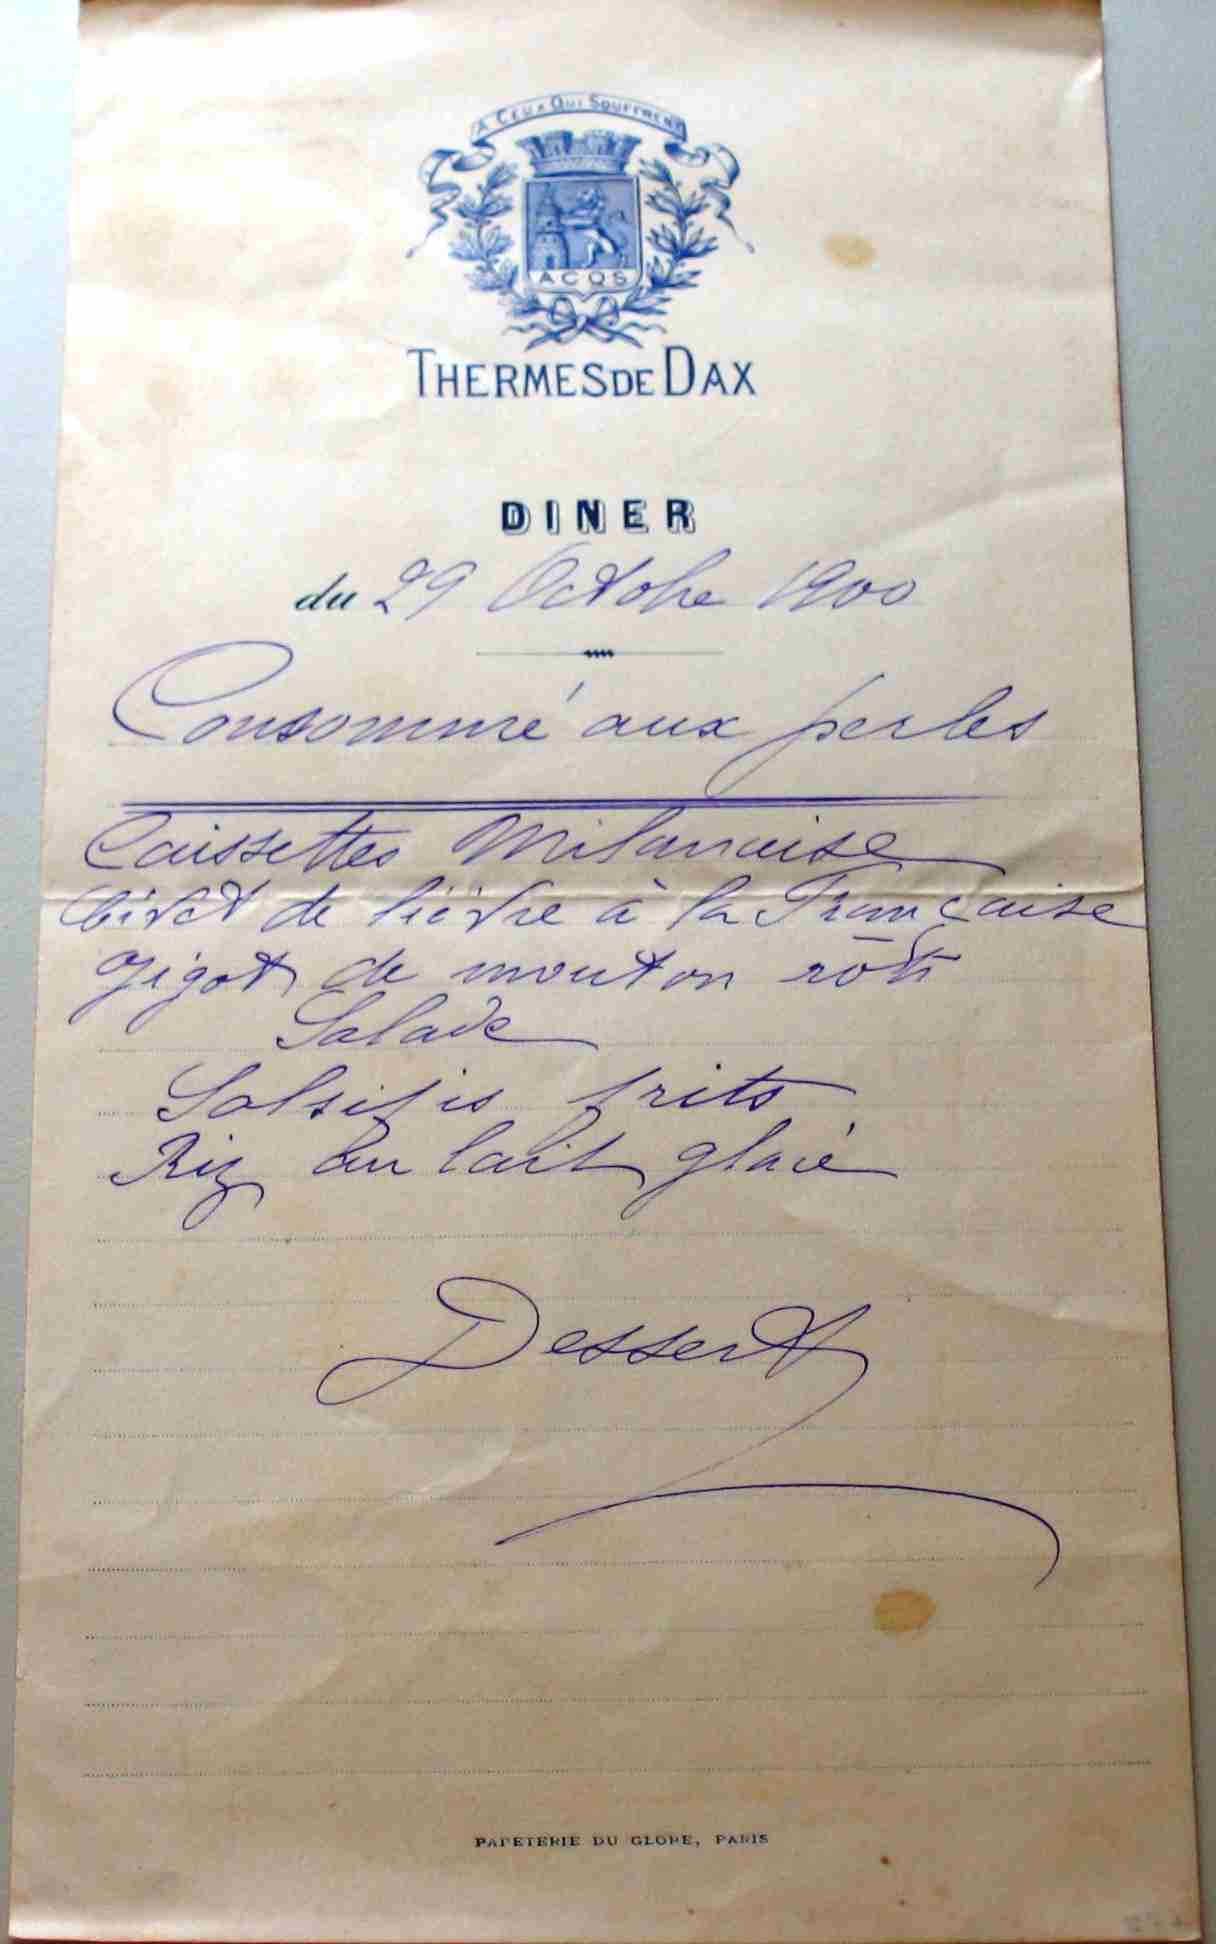 A CEUX QUI SOUFFRENT
ACQS
THERMES DE DAX
DINER
du 29 Octobre 1900
Consommé aux perles
Caissettes Milanaise
Civet de lièvre à la Française
gigot de mouton rôti
Salade
Salsifis frits
Riz au lait glacé
Dessert
PAPETERIE DU GLOBE, PARIS